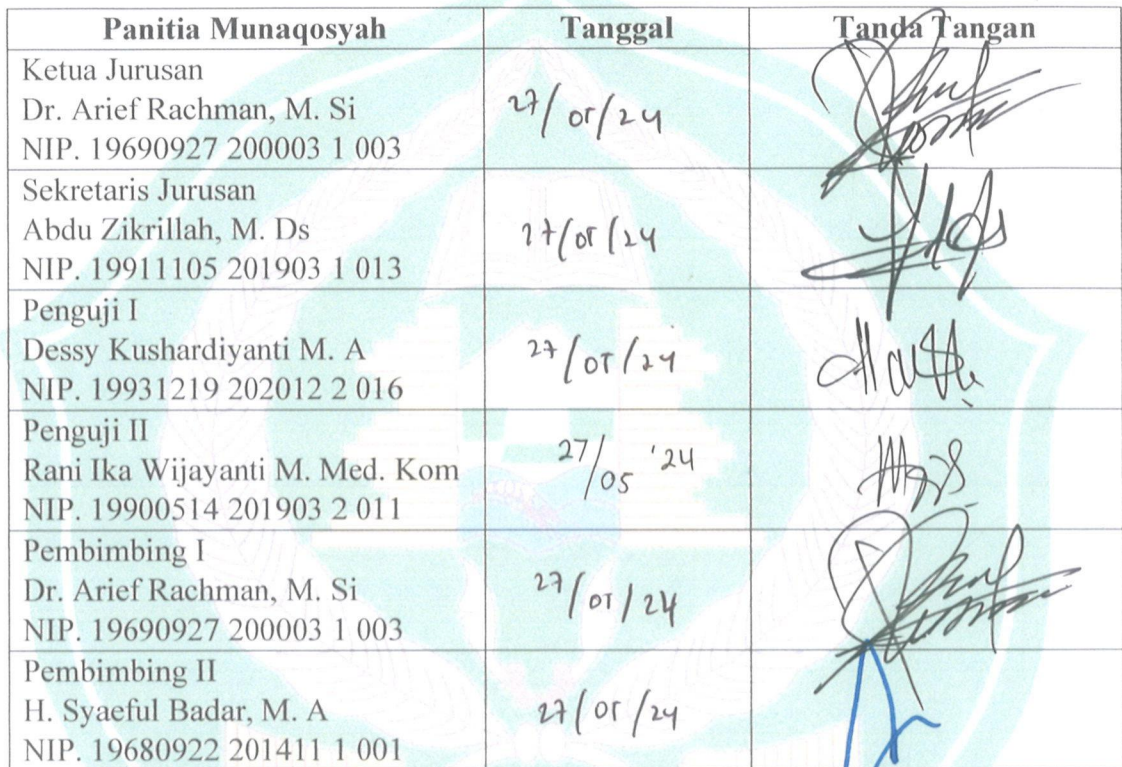 Panitia Munaqosyah Tanggal Tanda Tangan
Ketua Jurusan
Dr. Arief Rachman, M. Si 27/05/24
NIP. 19690927 200003 1 003
Sekretaris Jurusan
Abdu Zikrillah, M. Ds 27/05/24
NIP. 19911105 201903 1 013
Penguji I
Dessy Kushardiyanti M. A 27/05/24
NIP. 19931219 202012 2 016
Penguji II
Rani Ika Wijayanti M. Med. Kom 27/05 '24
NIP. 19900514 201903 2 011
Pembimbing I
Dr. Arief Rachman, M. Si 27/05/24
NIP. 19690927 200003 1 003
Pembimbing II
H. Syaeful Badar, M. A 27/05/24
NIP. 19680922 201411 1 001